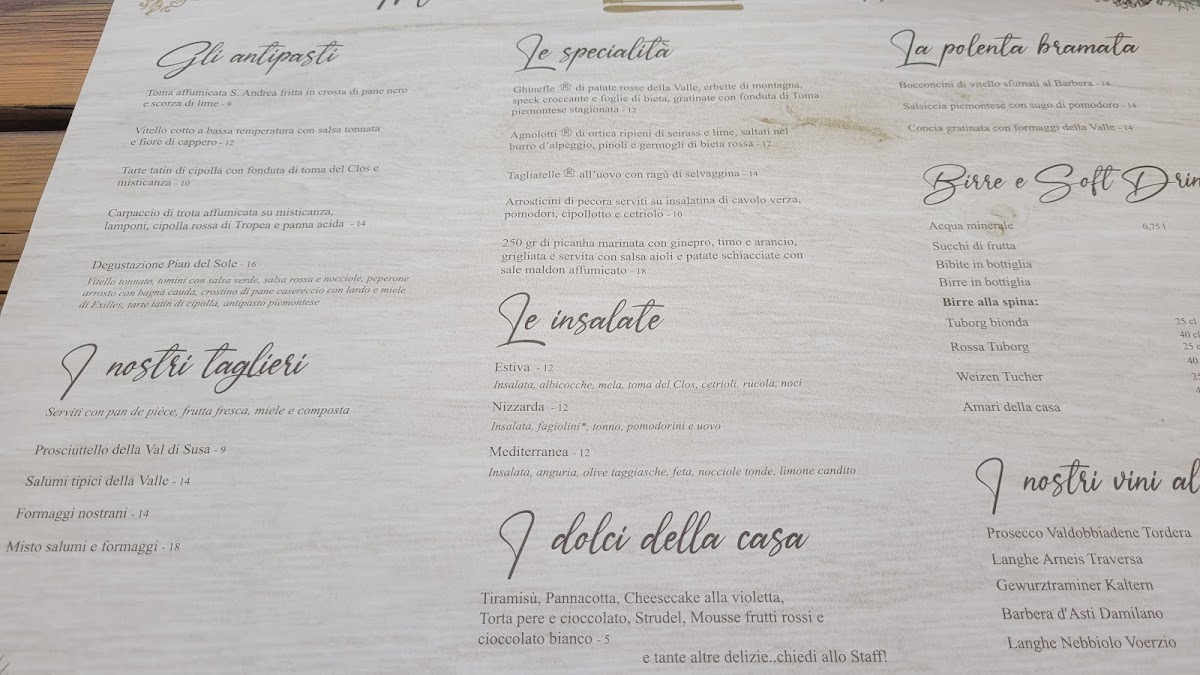 Gli antipasti
Toma affumicata S. Andrea fritta in crosta di pane nero
e scorza di lime - 9
Vitello cotto a bassa temperatura con salsa tonnata
e fiore di cappero - 12
Tarte tatin di cipolla con fonduta di toma del Clos e
misticanza - 10
Carpaccio di trota affumicata su misticanza,
lamponi, cipolla rossa di Tropea e panna acida - 14
Degustazione Pian del Sole - 16
Vitello tonnato, tomini con salsa verde, salsa rossa e nocciole, peperone
arrosto con bagna cauda, crostino di pane casereccio con lardo e miele
di Exilles, tarte tatin di cipolla, antipasto piemontese
I nostri taglieri
Serviti con pan de pièce, frutta fresca, miele e composta
Prosciuttello della Val di Susa - 9
Salumi tipici della Valle - 14
Formaggi nostrani - 14
Misto salumi e formaggi - 18
Le specialità
Ghinefle di patate rosse della Valle, erbette di montagna,
speck croccante e foglie di bieta, gratinate con fonduta di Toma
piemontese stagionata - 12
Agnolotti di ortica ripieni di seirass e lime, saltati nel
burro d'alpeggio, pinoli e germogli di bieta rossa - 12
Tagliatelle all'uovo con ragù di selvaggina - 14
Arrosticini di pecora serviti su insalatina di cavolo verza,
pomodori, cipollotto e cetriolo - 10
250 gr di picanha marinata con ginepro, timo e arancio,
grigliata e servita con salsa aioli e patate schiacciate con
sale maldon affumicato - 18
Le insalate
Estiva - 12
Insalata, albicocche, mela, toma del Clos, cetrioli, rucola, noci
Nizzarda - 12
Insalata, fagiolini*, tonno, pomodorini e uovo
Mediterranea - 12
Insalata, anguria, olive taggiasche, feta, nocciole tonde, limone candito
I dolci della casa
Tiramisù, Pannacotta, Cheesecake alla violetta,
Torta pere e cioccolato, Strudel, Mousse frutti rossi e
cioccolato bianco - 5
e tante altre delizie..chiedi allo Staff!
La polenta bramata
Bocconcini di vitello sfumati al Barbera - 14
Salsiccia piemontese con sugo di pomodoro - 14
Concia gratinata con formaggi della Valle - 14
Birre e Soft Drin
Acqua minerale 0,75 l
Succhi di frutta
Bibite in bottiglia
Birre in bottiglia
Birre alla spina:
Tuborg bionda 25 cl
40 cl
Rossa Tuborg 25 c
40
Weizen Tucher 25
Amari della casa
I nostri vini al
Prosecco Valdobbiadene Tordera
Langhe Arneis Traversa
Gewurztraminer Kaltern
Barbera d'Asti Damilano
Langhe Nebbiolo Voerzio